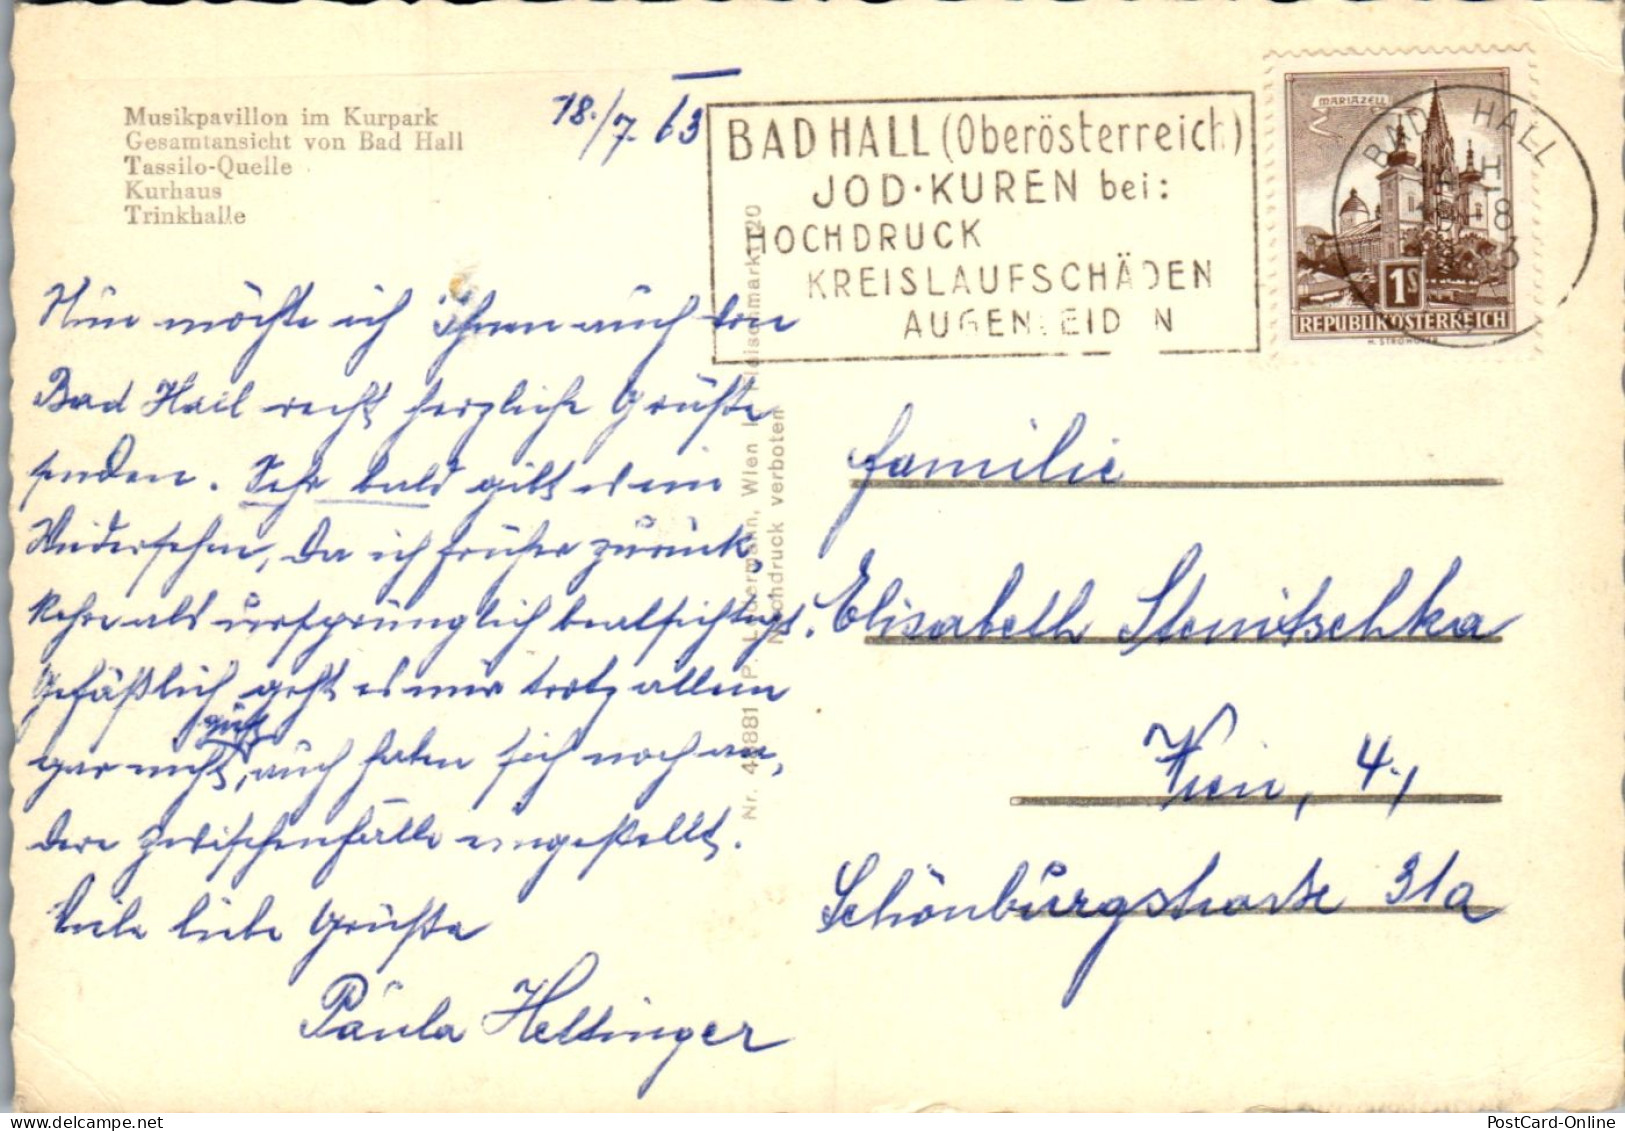 Musikpavillon im Kurpark
Gesamtansicht von Bad Hall
Tassilo-Quelle
Kurhaus
Trinkhalle
18./7. 63
BAD HALL (Oberösterreich)
JOD·KUREN bei:
HOCHDRUCK
KREISLAUFSCHÄDEN
AUGENLEIDEN
MARIAZELL
1S
REPUBLIK ÖSTERREICH
BAD HALL
Nun möchte ich Ihnen auch von
Bad Hall recht herzliche Grüße
senden. Sehr bald gibt es ein
Wiedersehen, da ich früher zurück
kehre als ursprünglich beabsichtigt.
Gefäßlich geht es mir trotz allem
gar nicht gut, auch haben sich noch an-
dere Zwischenfälle eingestellt.
Viele liebe Grüße
Paula Hettinger
Nr. P. Ledermann, Wien I, Fleischmarkt 20
Nachdruck verboten
Familie
Elisabeth Stenitschka
Wien, 4.,
Schönburgstraße 31a
PostCard-Online